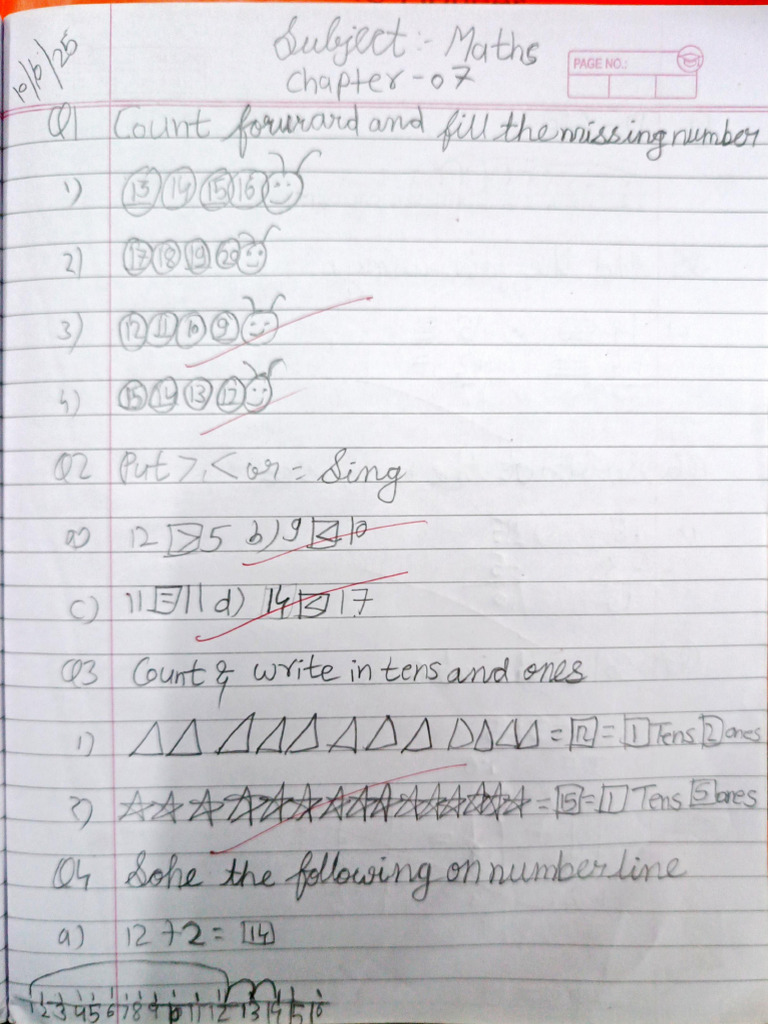 10/6/25
Subject:- Maths
Chapter-07
PAGE NO.:
Q1 Count forward and fill the missing number
1) 13 14 15 16
2) 17 18 19 20
3) 12 11 10 9
4) 15 14 13 12
Q2 Put >, < or = Sing
a) 12 > 5 b) 9 < 10
c) 11 = 11 d) 14 < 17
Q3 Count & write in tens and ones
1) = 12 = 1 Tens 2 ones
2) = 15 = 1 Tens 5 ones
Q4 Solve the following on number line
a) 12 + 2 = 14
1 2 3 4 5 6 7 8 9 10 11 12 13 14 15 16